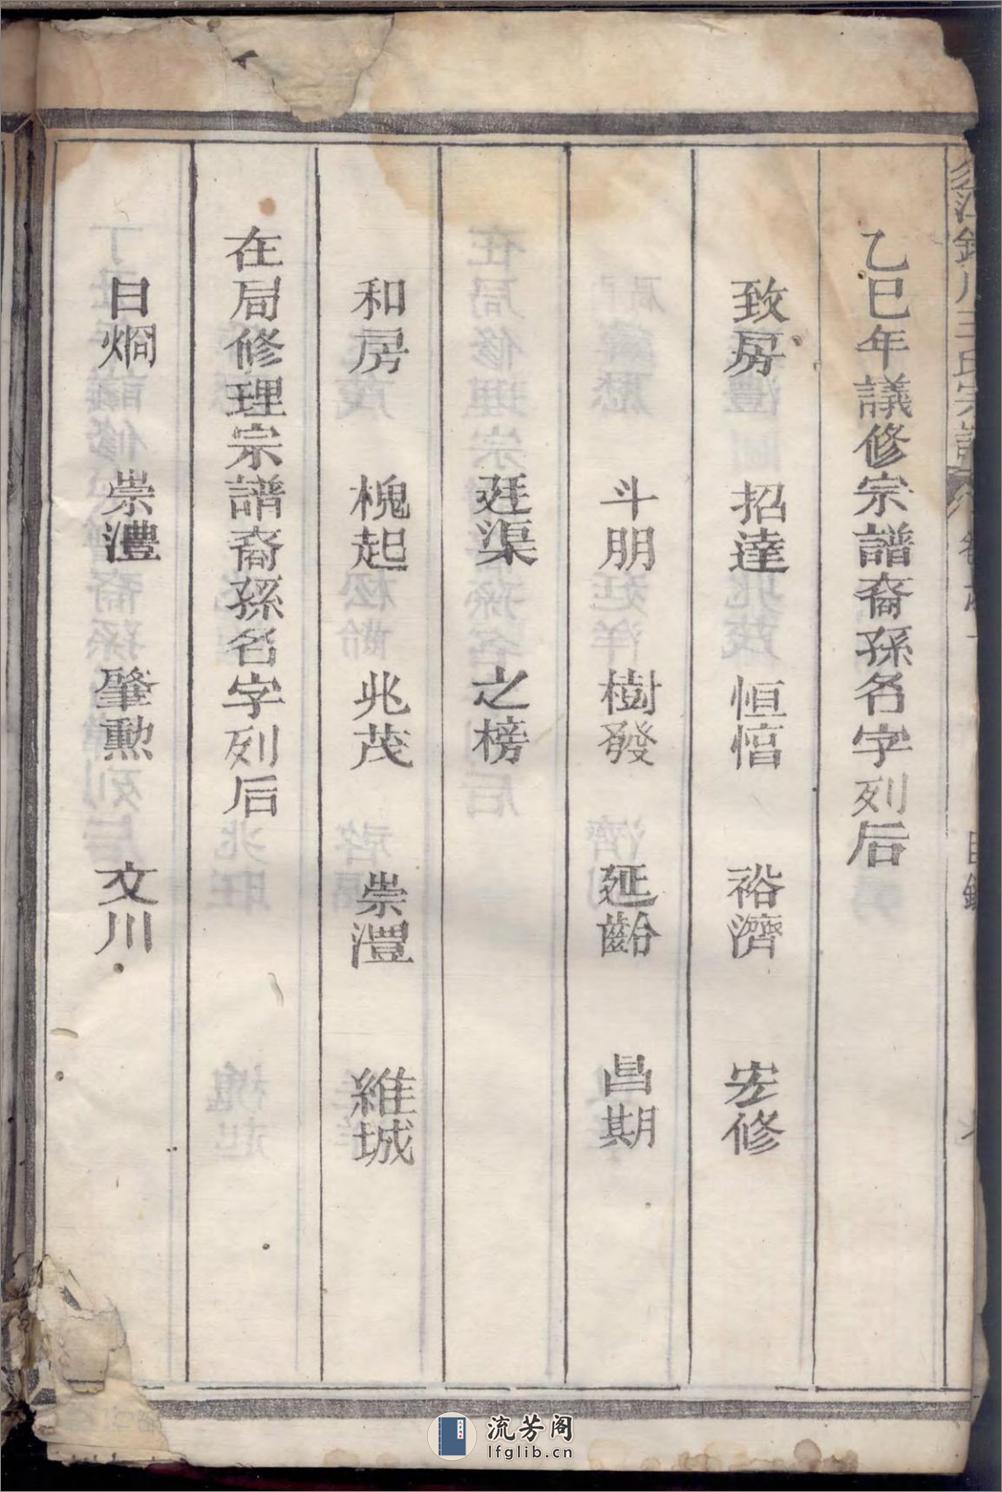 乙巳年議修宗譜裔孫名字列后
致房 招達 恒愔 裕濟 宏修
斗朋 樹發 延齡 昌期
廷渠 之榜
和房 槐起 兆茂 崇灃 維城
在局修理宗譜裔孫名字列后
日烱 崇灃 肇勳 文川
流芳阁
lfglib.cn